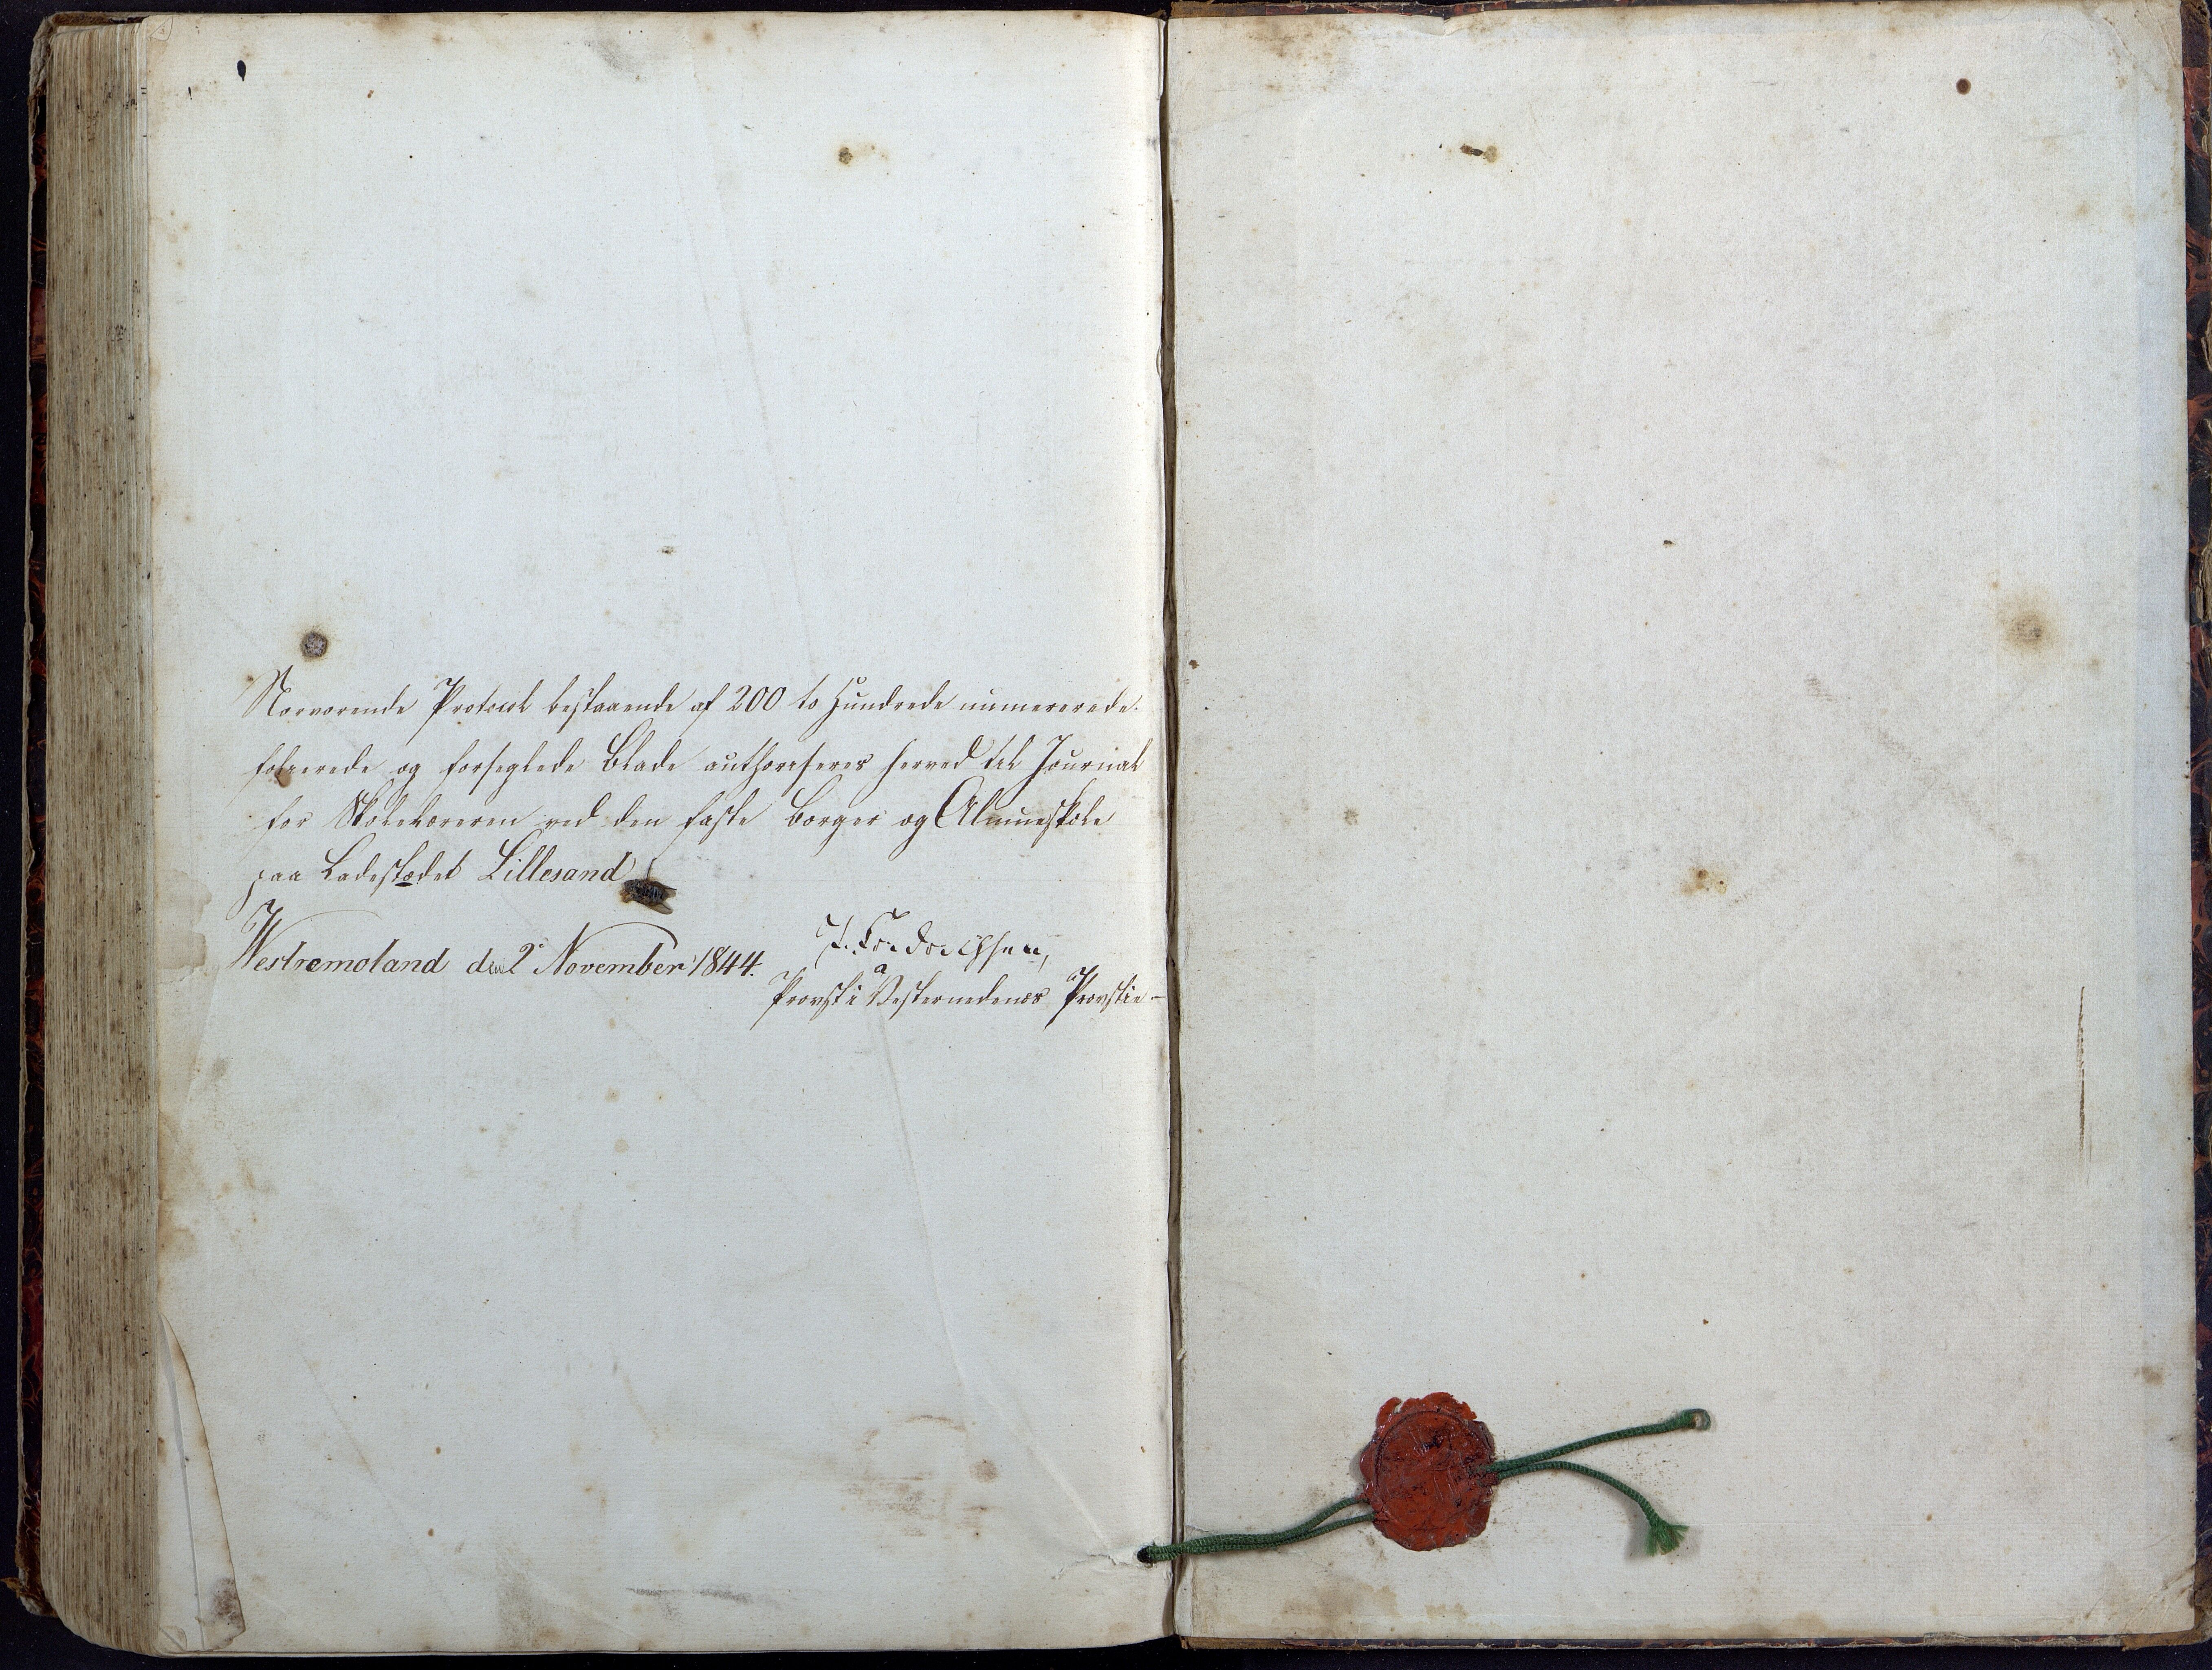 Nærværende Protocol bestaaende af 200 to Hundrede numererede
folierede og forseglede Blade authoriseres herved til Journal
for Skolelæreren ved den faste Borger og Almueskole
paa Ladestædet Lillesand
Westremoland den 2 November 1844.
Fredrichsen,
Provst i Vesternedenæs Provstie